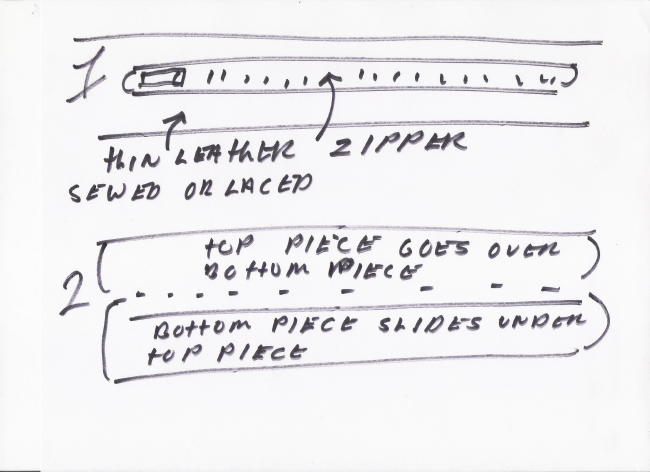 1
THIN LEATHER ZIPPER
SEWED OR LACED
2
TOP PIECE GOES OVER
BOTTOM PIECE
BOTTOM PIECE SLIDES UNDER
TOP PIECE